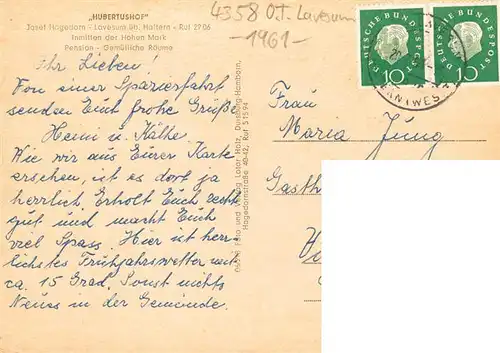 "HUBERTUSHOF"
Josef Hagedorn - Lavesum üb. Haltern - Ruf 2906
Inmitten der Hohen Mark
Pension - Gemütliche Räume
4358 O.T. Lavesum
-1961-
DEUTSCHE BUNDESPOST
10
DEUTSCHE BUNDESPOST
10
Ihr Lieben!
Von einer Spazierfahrt
senden Euch frohe Grüße
Heini u. Käthe
Wie wir aus Eurer Karte
ersehen, ist es dort ja
herrlich. Erholt Euch recht
gut und macht Euch
viel Spass. Hier ist herr-
lichstes Frühjahrswetter mit
ca. 15 Grad. Sonst nichts
Neues in der Gemeinde.
Foto und Verlag Lothar Holz, Duisburg-Hamborn,
Hagedornstraße 40-42, Ruf 51594
Frau
Maria Jung
Gasth